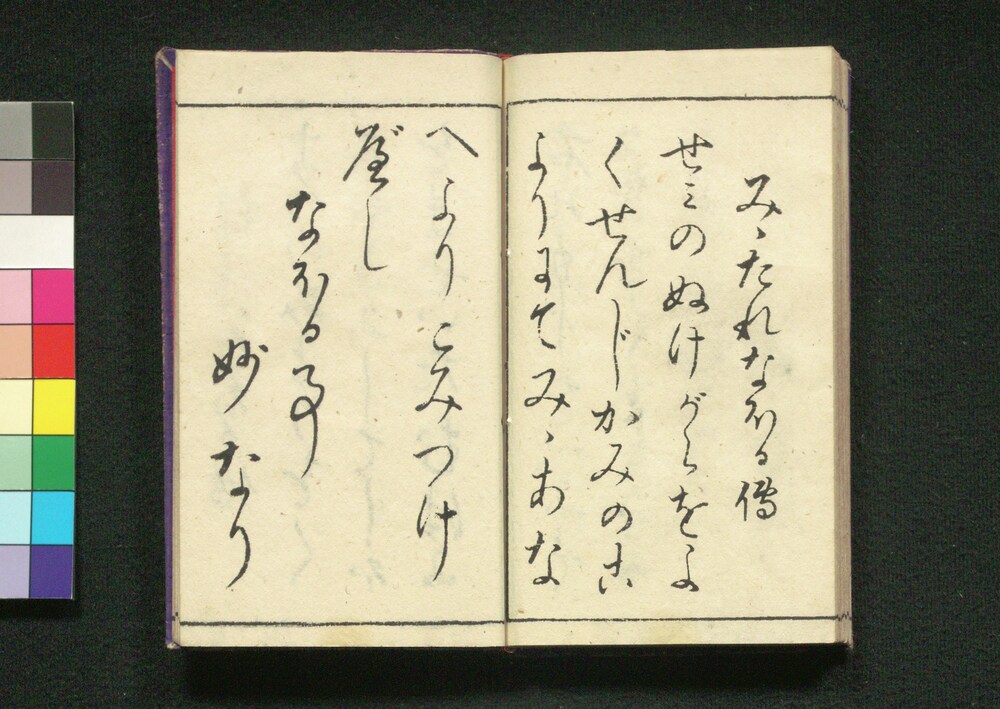 みゝたれなほる傳
せミのぬけがらをよ
くせんじかみのこ
よりにてみゝあな
へよりこみつけ
べし
なほる事
妙なり